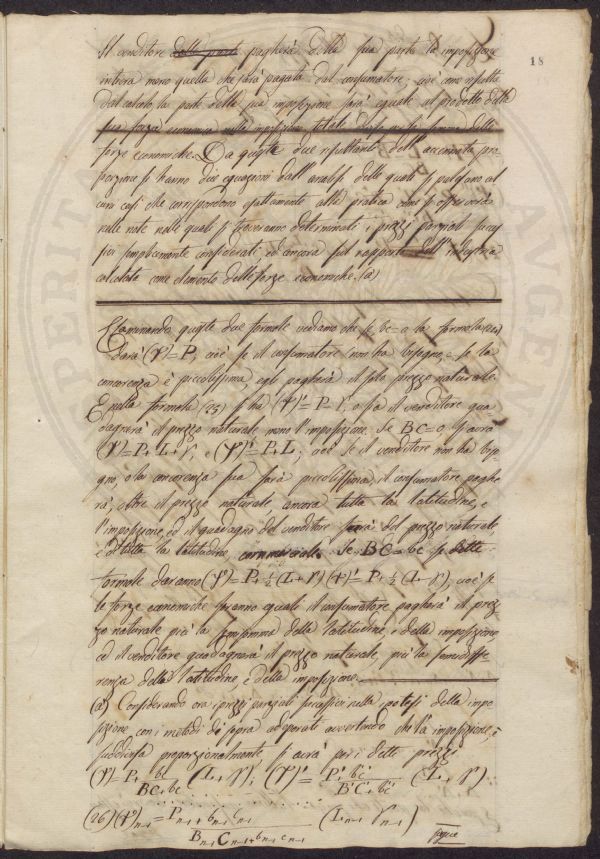 18
Il venditore dalla parte pagherà della sua parte la imposizione
intiera meno quella che sarà pagata dal consumatore; cioè come risulta
dal calcolo la parte della sua imposizione sarà eguale al prodotto della
sua forza economica nella imposizione totale
forze economiche. Da queste due risultanti dell'accennata pro-
porzione si hanno due equazioni dall'analisi delle quali si possono al-
cuni casi che corrispondono esattamente alla pratica come si osserverà
nelle note nelle quali si troveranno determinati i prezzi parziali succes-
sivi semplicemente considerati ed ancora sul rapporto dell'industria
calcolata come elemento delle forze economiche. (a)
Esaminando queste due formole vediamo che se bc=o la formola
darà (P)'=P, cioè se il consumatore non ha bisogno, e la
concorenza è piccolissima egli pagherà il solo prezzo naturale.
E nella formola (25) si ha (P)'=P-r, o sia il venditore gua-
dagnerà il prezzo naturale meno l'imposizione. Se BC=o si avrà
(P)'=P+L+r, e (P)'=P+L; cioè se il venditore non ha biso-
gno e la concorenza sua sarà piccolissima, il consumatore paghe-
rà, oltre il prezzo naturale, ancora tutta la latitudine, e
l'imposizione, ed il guadagno del venditore sarà del prezzo naturale,
e di tutta la latitudine commerciale. Se BC=bc le dette
formole daranno (P)'=P+½(L+r) (P)'=P+½(L-r), cioè se
le forze economiche saranno eguali il consumatore pagherà il prez-
zo naturale più la semisomma della latitudine, e della imposizione,
ed il venditore guadagnerà il prezzo naturale, più la semidiffe-
renza della latitudine e della imposizione.
(a) Considerando ora i prezzi parziali successivi nella ipotesi della impo-
sizione con i metodi di sopra adoperati avvertendo che l'imposizione, è
suddivisa proporzionalmente si avrà pari dette prezzi
(P)'=P+ bc/BC+bc (L+r)'; (P')'= P'+ b'c'/B'C'+b'c' (L'+r')
(26) (P)'n-1 = Pn-1 + bn-1 cn-1 / Bn-1 Cn-1 + bn-1 cn-1 (Ln-1 + rn-1)
segue